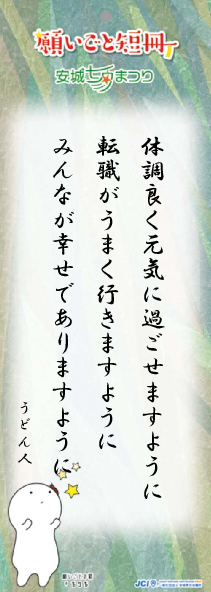 願いごと短冊
安城七夕まつり
体調良く元気に過ごせますように
転職がうまく行きますように
みんなが幸せでありますように
うどん人
JCI